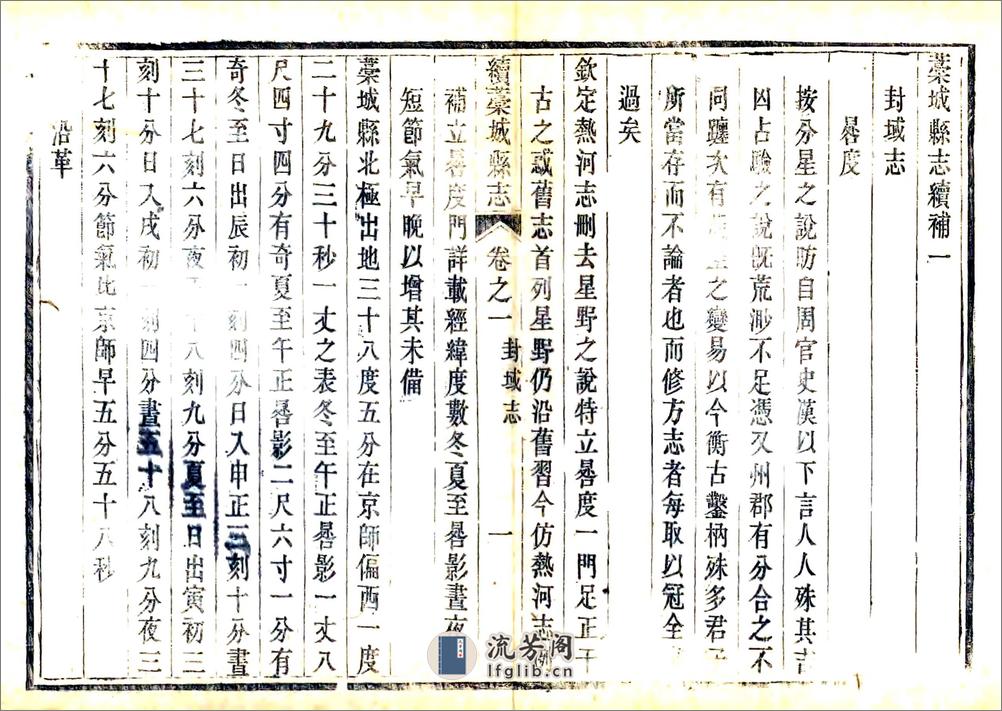 藁城縣志續補一
封域志
晷度
按分星之說昉自周官史漢以下言人人殊其吉
凶占驗之說既荒渺不足憑又州郡有分合之不
同躔次有之變易以今衡古鑿枘殊多君子
所當存而不論者也而修方志者每取以冠全
過矣
欽定熱河志刪去星野之說特立晷度一門足正千
古之惑舊志首列星野仍沿舊習今仿熱河志例
續藁城縣志 卷之一 封域志 一
補立晷度門詳載經緯度數冬夏至晷影晝夜
短節氣早晚以增其未備
藁城縣北極出地三十八度五分在京師偏西一度
二十九分三十秒一丈之表冬至午正晷影一丈八
尺四寸四分有奇夏至午正晷影二尺六寸一分有
奇冬至日出辰初一刻四分日入申正三刻十分晝
三十七刻六分夜五十八刻九分夏至日出寅初三
刻十分日入戌初一刻四分晝五十八刻九分夜三
十七刻六分節氣比京師早五分五十八秒
沿革
流芳阁
lfglib.cn